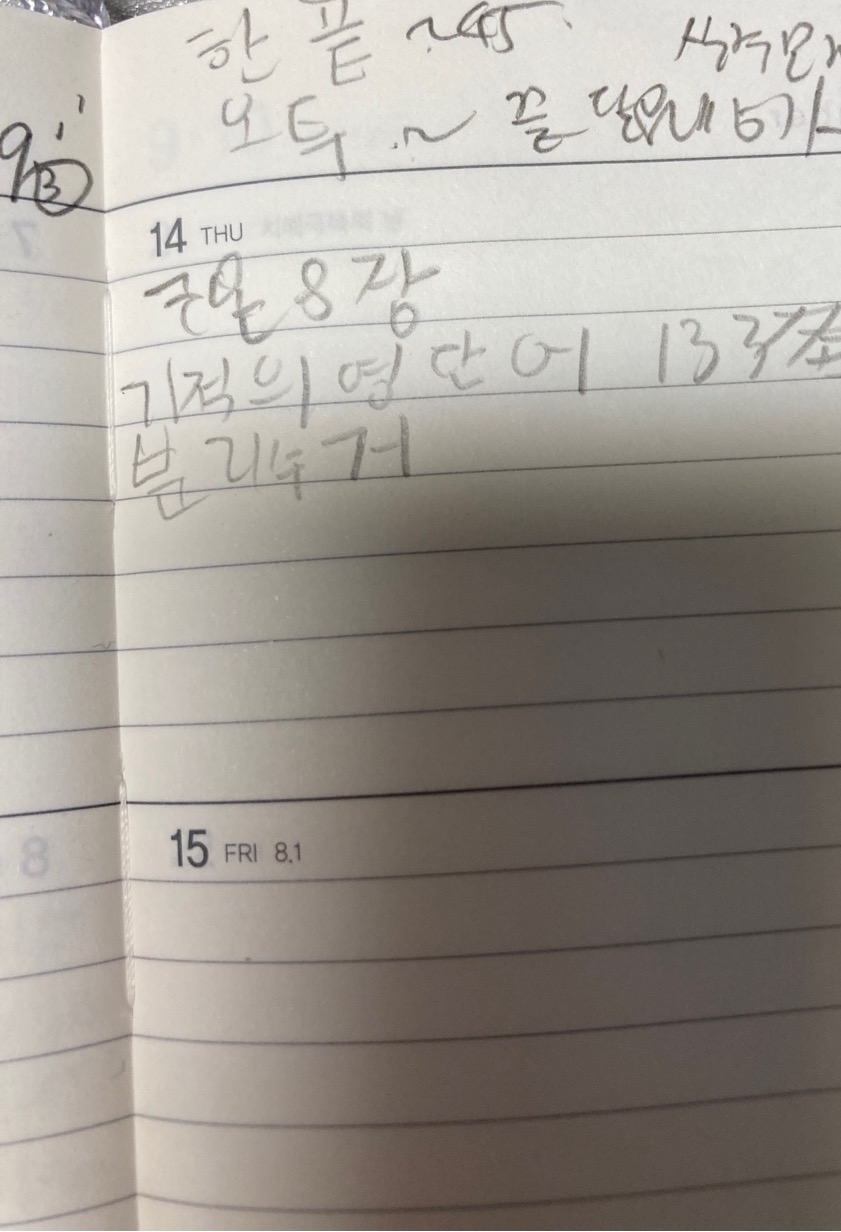 한 끝 ~45
오투 ~ 끝 단원
9 13
14 THU
구몬 8장
기적의 영단어 13
분리수거
15 FRI 8.1